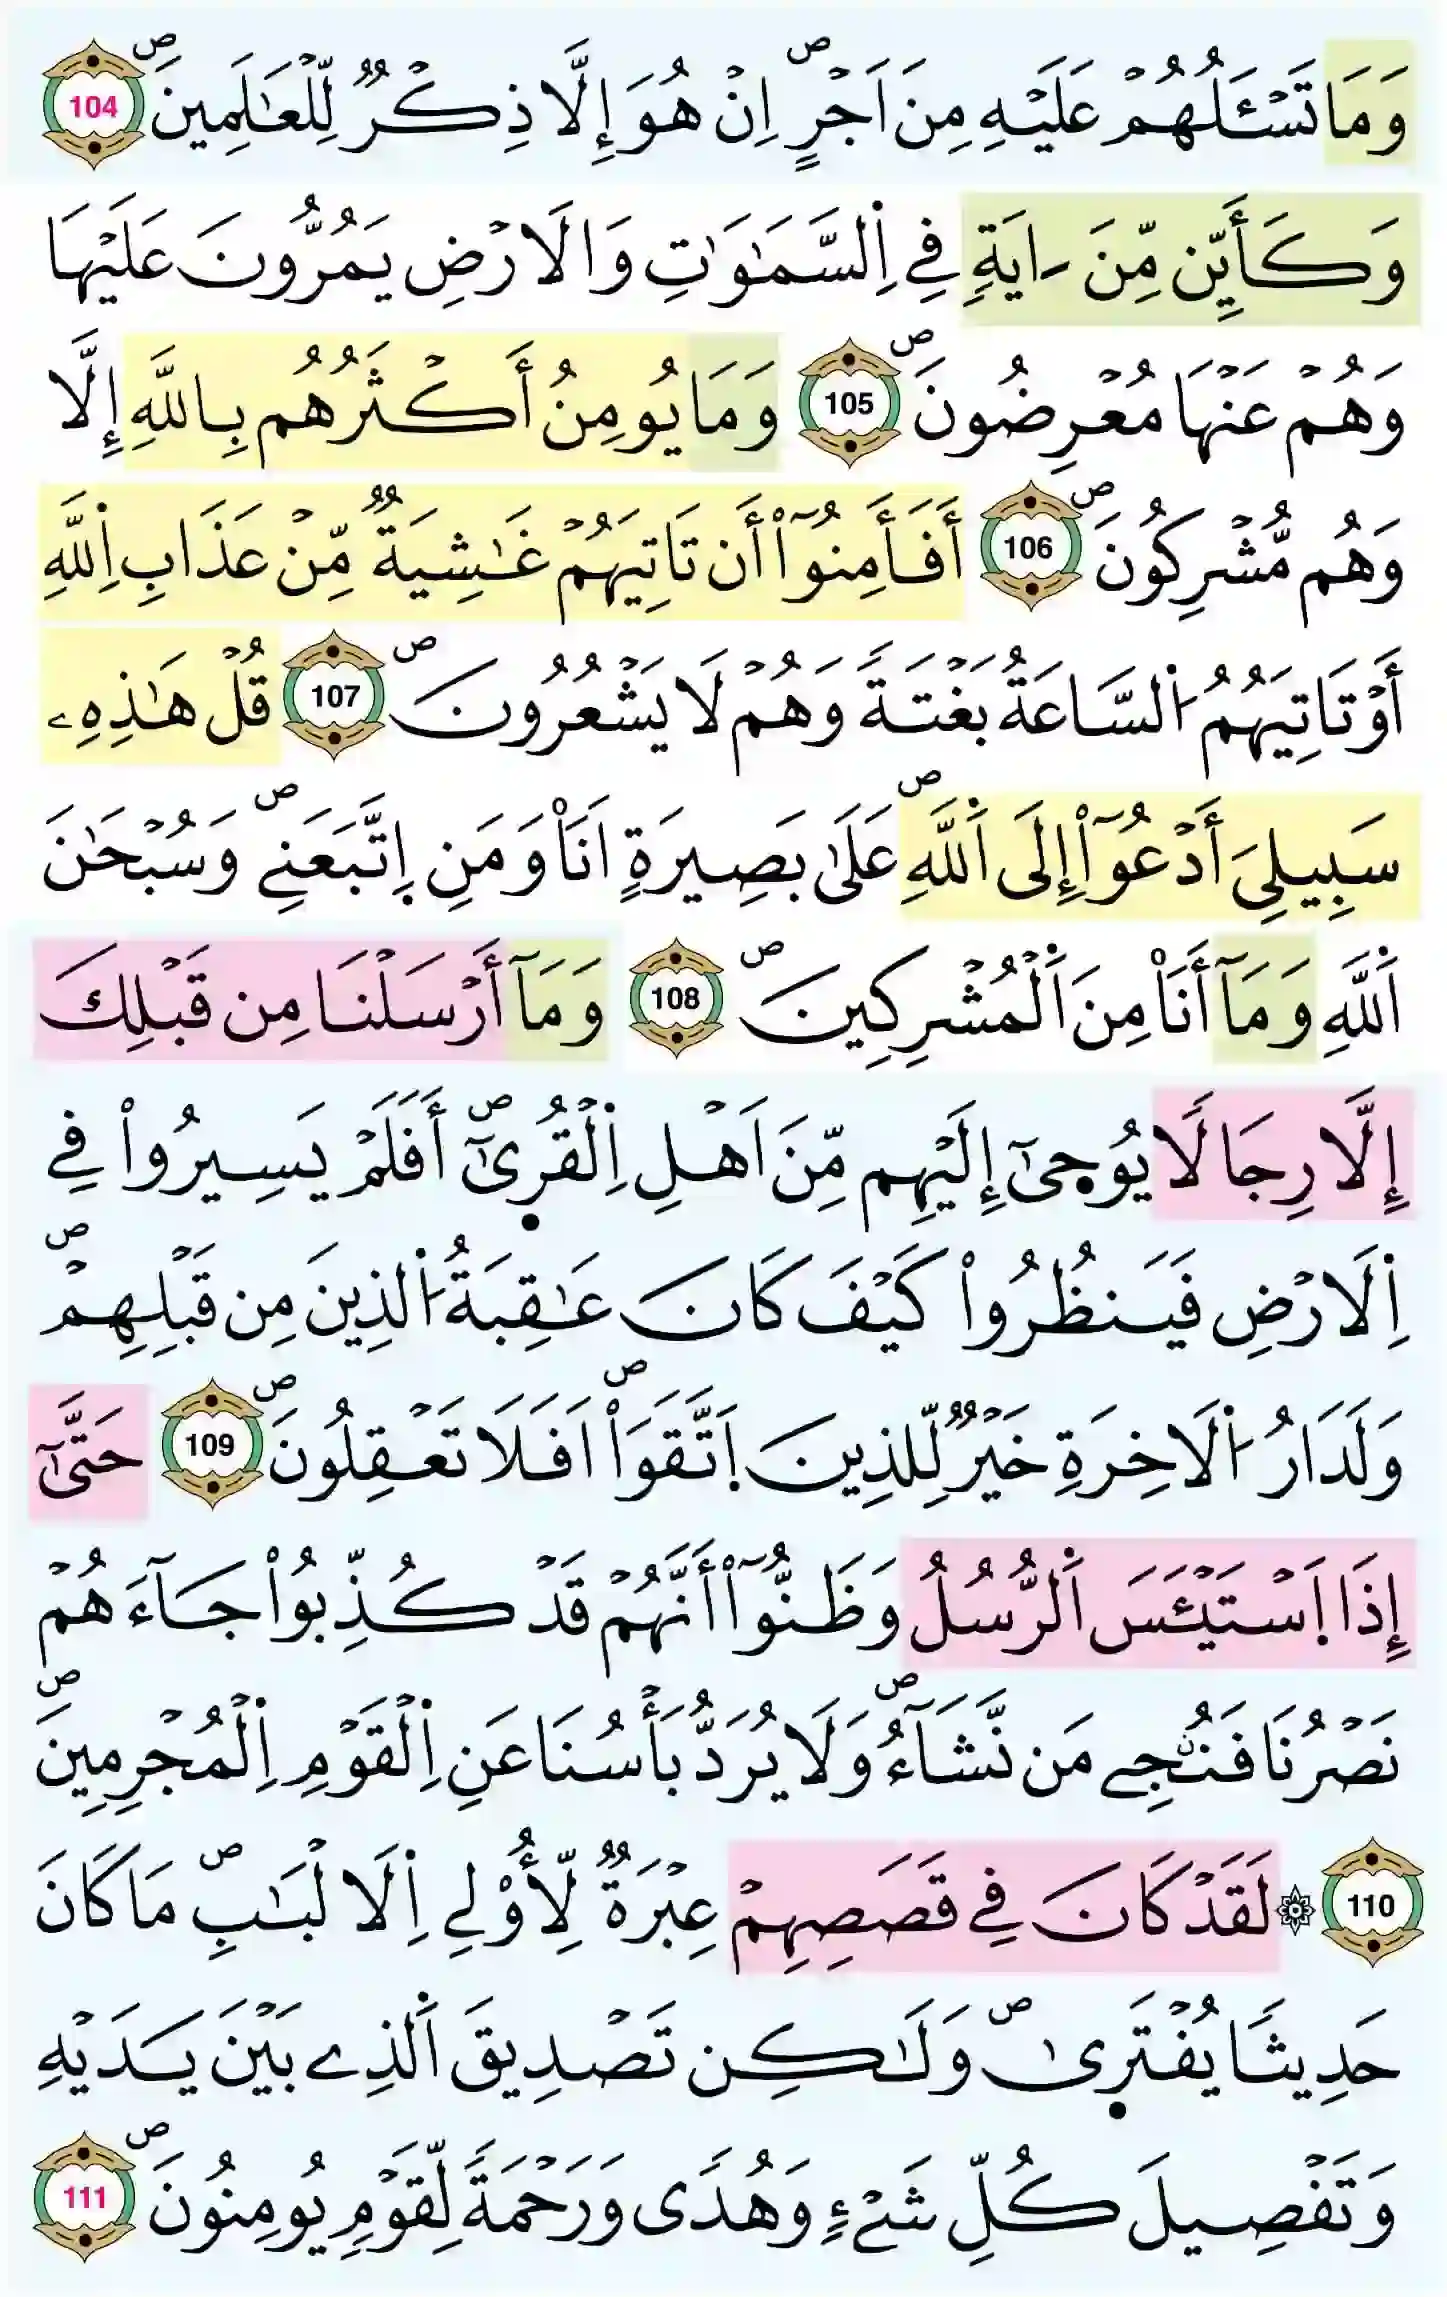 وَمَا تَسْـَٔلُهُمْ عَلَيْهِ مِنَ اَجْرٍۖ اِنْ هُوَ إِلَّا ذِكْرٌ لِّلْعَٰلَمِينَۖ 104
وَكَأَيِّن مِّنَ ـاٰيَةٍ فِے اِ۬لسَّمَٰوَٰتِ وَالَارْضِ يَمُرُّونَ عَلَيْهَا
وَهُمْ عَنْهَا مُعْرِضُونَۖ 105 وَمَا يُومِنُ أَكْثَرُهُم بِاللَّهِ إِلَّا
وَهُم مُّشْرِكُونَۖ 106 أَفَأَمِنُوٓاْ أَن تَاتِيَهُمْ غَٰشِيَةٌ مِّنْ عَذَابِ اِ۬للَّهِ
أَوْ تَاتِيَهُمُ اُ۬لسَّاعَةُ بَغْتَةً وَهُمْ لَا يَشْعُرُونَۖ 107 قُلْ هَٰذِهِۦ
سَبِيلِيَ أَدْعُوٓاْ إِلَى اَ۬للَّهِۖ عَلَىٰ بَصِيرَةٍ اَنَا۠ وَمَنِ اِ۪تَّبَعَنِےۖ وَسُبْحَٰنَ
اَ۬للَّهِ وَمَآ أَنَا۠ مِنَ اَ۬لْمُشْرِكِينَۖ 108 وَمَآ أَرْسَلْنَا مِن قَبْلِكَ
إِلَّا رِجَالًا يُوحَىٰٓ إِلَيْهِم مِّنَ اَهْلِ اِ۬لْقُر۪ىٰٓۖ أَفَلَمْ يَسِيرُواْ فِے
اِ۬لَارْضِ فَيَنظُرُواْ كَيْفَ كَانَ عَٰقِبَةُ اُ۬لذِينَ مِن قَبْلِهِمْۖ
وَلَدَارُ اُ۬لَاخِرَةِ خَيْرٌ لِّلذِينَ اَ۪تَّقَوَاْۖ اَفَلَا تَعْقِلُونَۖ 109 حَتَّىٰٓ
إِذَا اَ۪سْتَيْـَٔسَ اَ۬لرُّسُلُ وَظَنُّوٓاْ أَنَّهُمْ قَدْ كُذِّبُواْ جَآءَهُمْ
نَصْرُنَا فَنُـۨجِے مَن نَّشَآءُۖ وَلَا يُرَدُّ بَأْسُنَا عَنِ اِ۬لْقَوْمِ اِ۬لْمُجْرِمِينَۖ
110 ۞ لَقَدْ كَانَ فِے قَصَصِهِمْ عِبْرَةٌ لِّأُوْلِے اِ۬لَالْبَٰبِۖ مَا كَانَ
حَدِيثاً يُفْتَر۪ىٰۖ وَلَٰكِن تَصْدِيقَ اَ۬لذِے بَيْنَ يَدَيْهِ
وَتَفْصِيلَ كُلِّ شَےْءٍ وَهُدًى وَرَحْمَةً لِّقَوْمٍ يُومِنُونَۖ 111